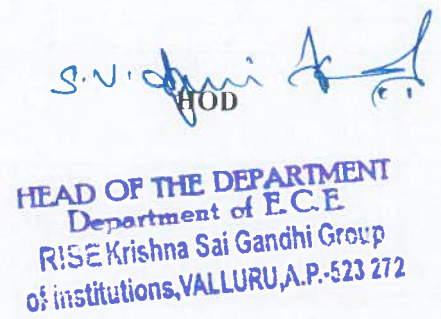 S.V.
HOD
HEAD OF THE DEPARTMENT
Department of E.C.E
RISE Krishna Sai Gandhi Group
of institutions,VALLURU,A.P.-523 272